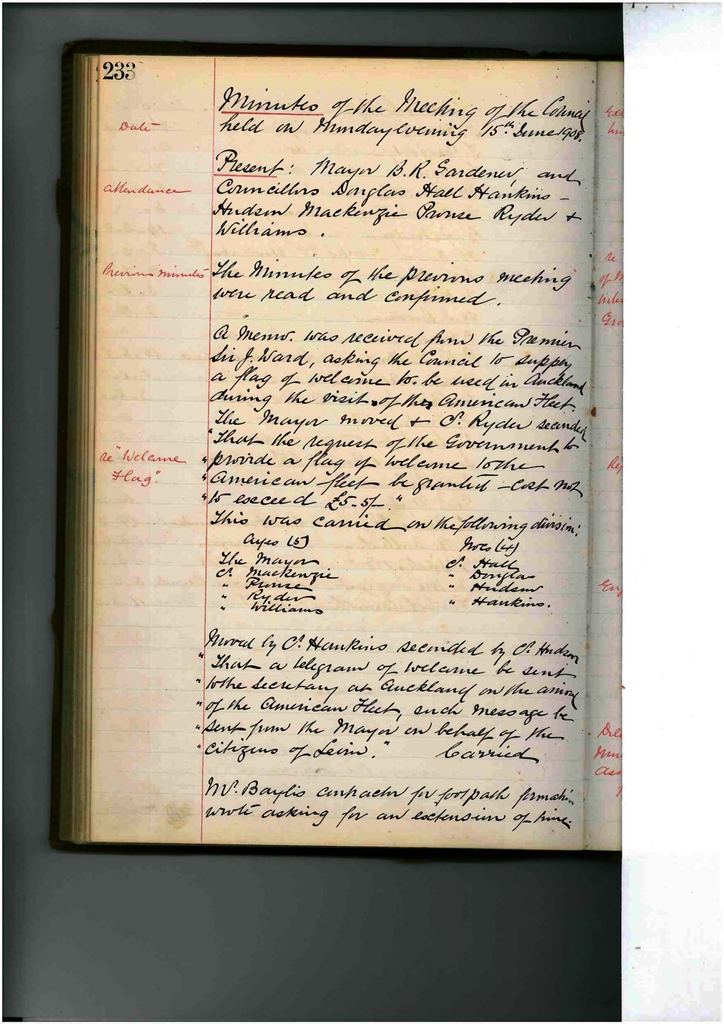 233
Minutes of the Meeting of the Council
Date
held on Monday evening 15th June 1908.
Present: Mayor B. R. Gardener, and
attendance
Councillors Douglas Hall Hankins -
Hudson Mackenzie Prouse Ryder &
Williams.
Previous minutes
The Minutes of the previous meeting
were read and confirmed.
A Memo. was received from the Premier
Sir J. Ward, asking the Council to supply
a flag of welcome to be used in Auckland
during the visit of the American Fleet.
The Mayor moved & Cr. Ryder seconded
"That the request of the Government to
re "Welcome
Flag".
" provide a flag of welcome to the
" American fleet be granted - cost not
" to exceed £5-5/-."
This was carried on the following division:
Ayes (5) Noes (4)
The Mayor Cr. Hall
Cr. Mackenzie " Douglas
" Prouse " Hudson
" Ryder " Hankins.
" Williams
Moved by Cr. Hankins seconded by Cr. Hudson
"That a telegram of welcome be sent
" to the Secretary at Auckland on the arrival
" of the American Fleet, such message be
" sent from the Mayor on behalf of the
" citizens of Levin." Carried
Mr. Baylis contractor for footpath formation
wrote asking for an extension of time